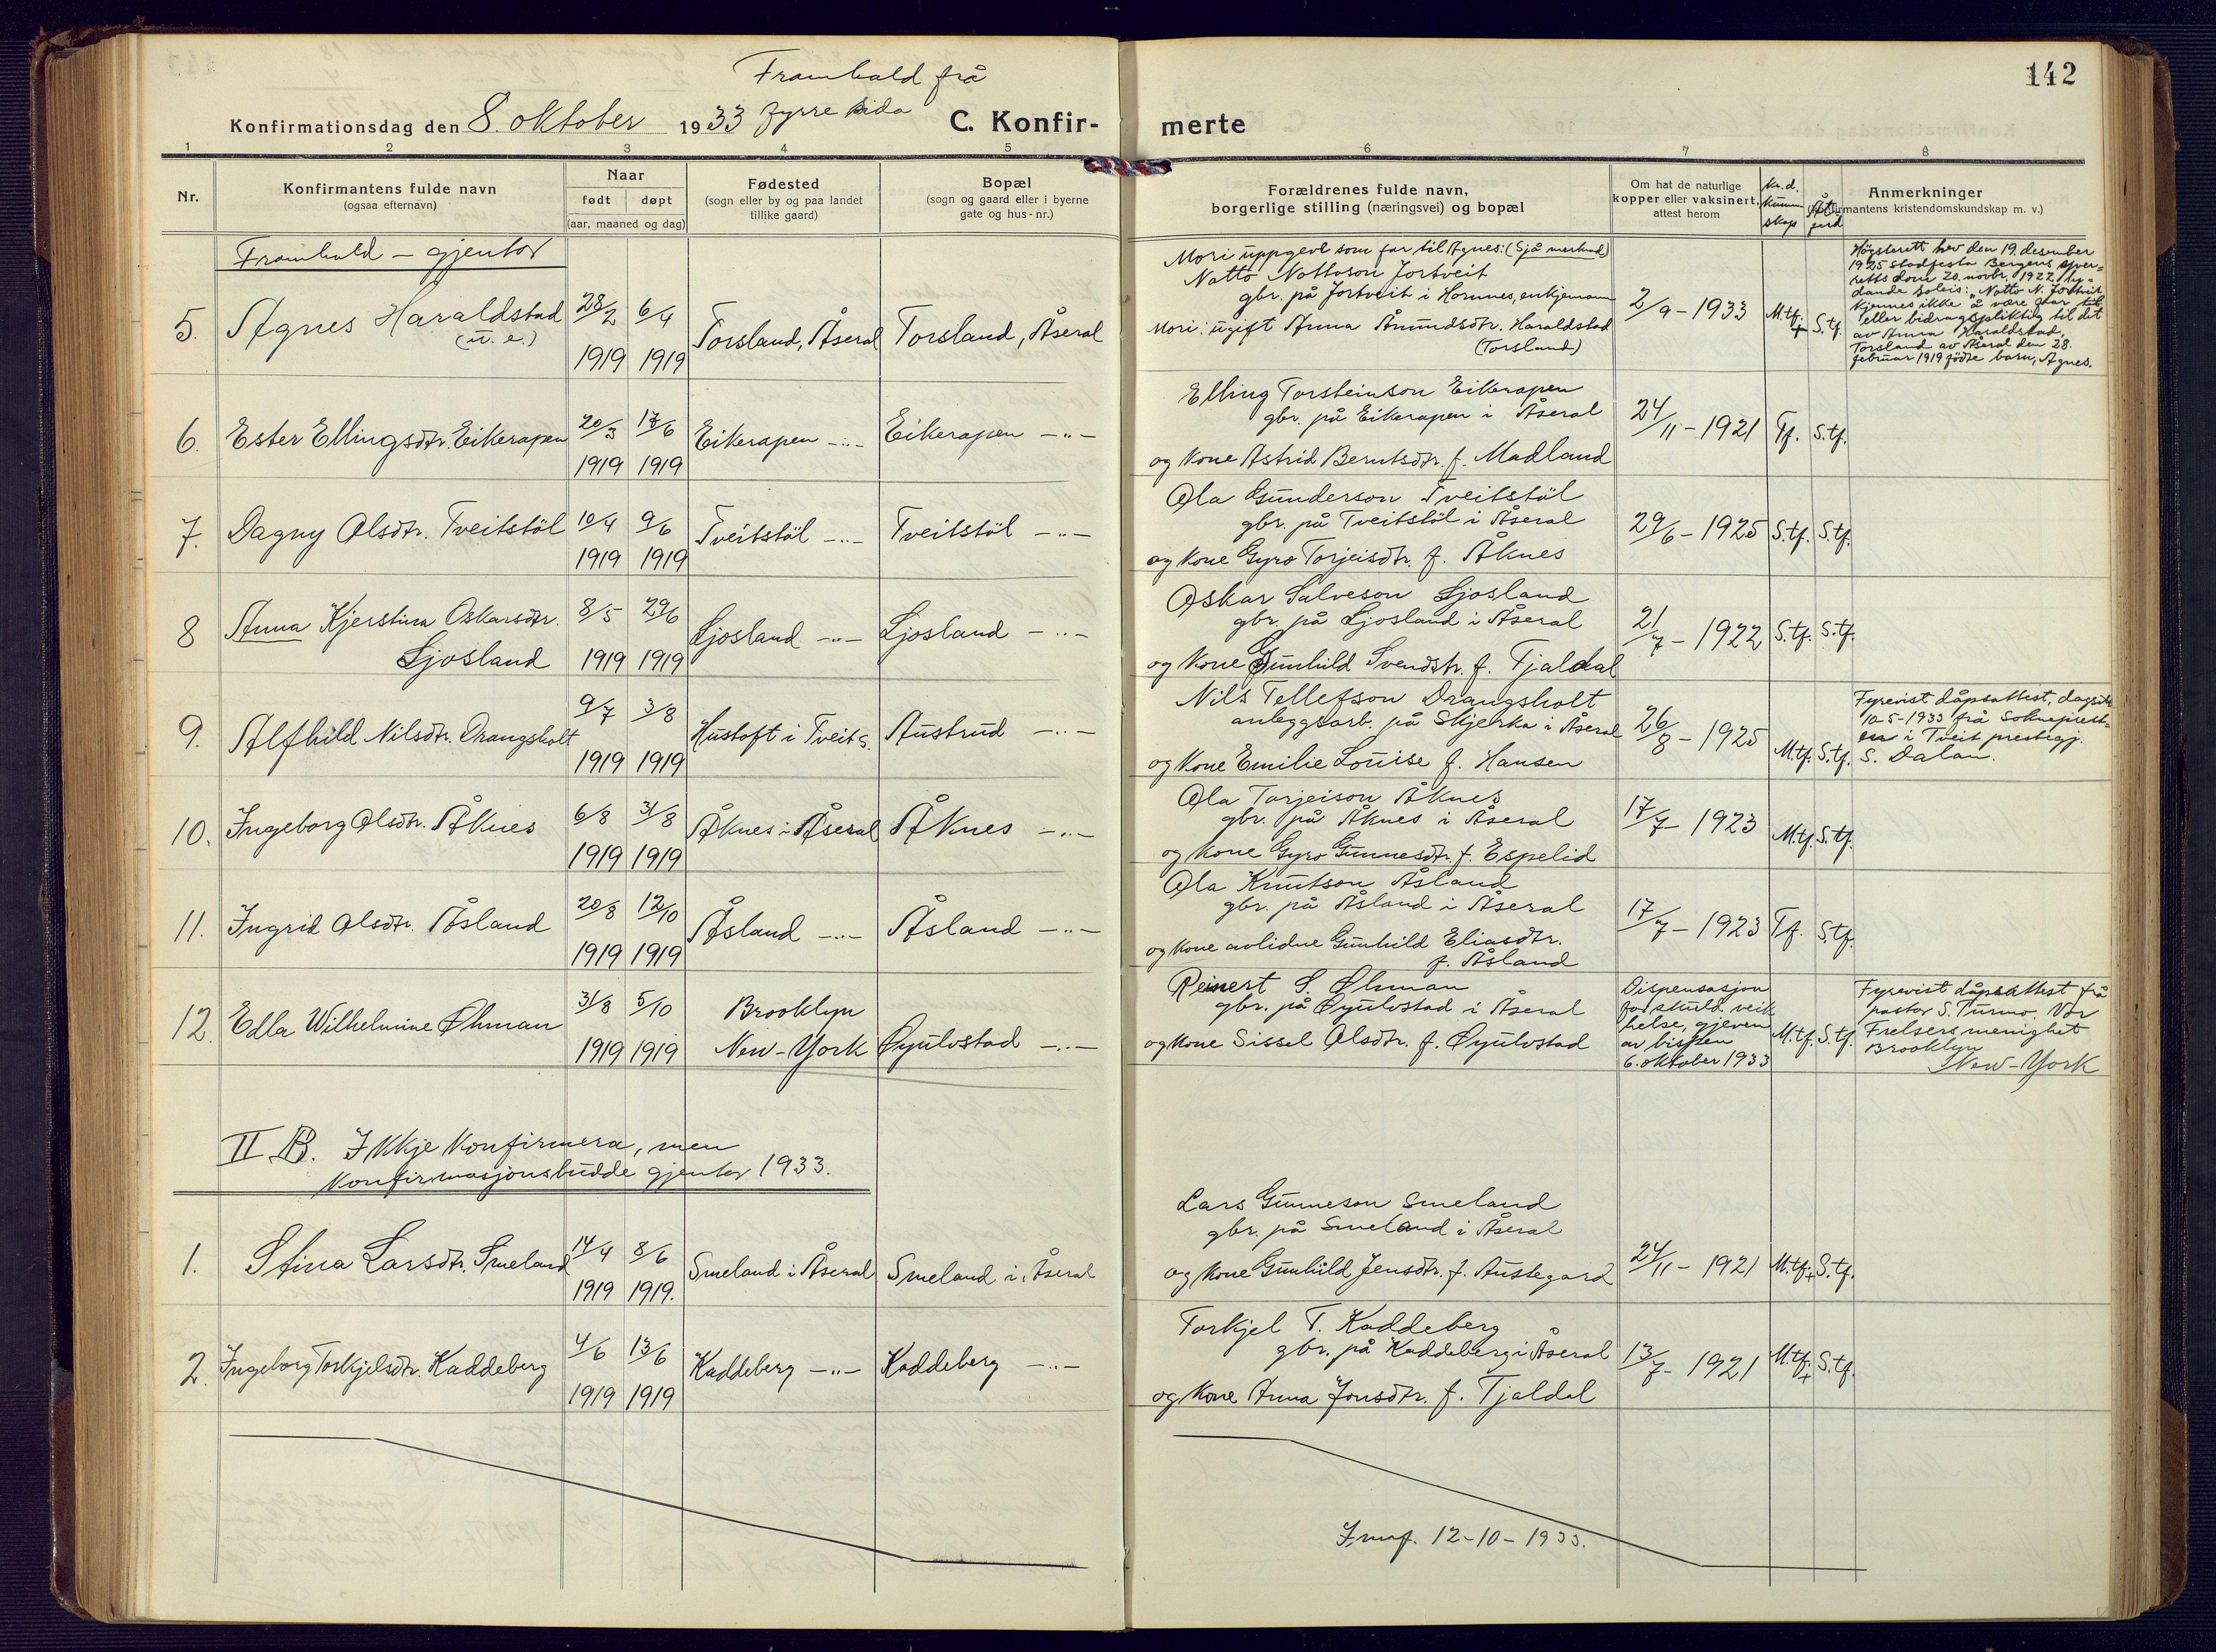 142
Framhald frå
Konfirmationsdag den 8. oktober 1933 fyrre sida C. Konfir- merte
1 2 3 4 5 6 7 8
Nr.
Konfirmantens fulde navn
(ogsaa efternavn)
Naar
født døpt
(aar, maaned og dag)
Fødested
(sogn eller by og paa landet
tillike gaard)
Bopæl
(sogn og gaard eller i byerne
gate og hus-nr.)
Forældrenes fulde navn,
borgerlige stilling (næringsvei) og bopæl
Om hat de naturlige
kopper eller vaksinert,
attest herom
Kr.d.
kunn
skap
Åt-
ferd
Anmerkninger
(konfirmantens kristendomskundskap m. v.)
Framhald – gjentor
5. Agnes Haraldstad
(u. e.)
28/2 6/4
1919 1919
Torsland, Åseral Torsland, Åseral
Mori uppgevt som far til Agnes: (Sjå merknad)
Natto Nottoson Fortveit
gbr. på Fortveit i Hornnes, enkjemann
Mori: ugift Anna Ånundsdtr. Haraldstad
(Torsland)
2/9-1933 M.tf.+ S.tf.
Högsterett hev den 19. desember
1925 stadfesta Bergens over-
retts dom 20. novbr. 1922 ly-
dande soleis: "Natto N. Fortveit
kjennes ikke å være far til
eller bidragspliktig til det
av Anna Haraldstad,
Torsland av Åseral den 28.
februar 1919 födte barn, Agnes.
6. Ester Ellingsdtr. Eikerapen
20/3 17/6
1919 1919
Eikerapen -"- Eikerapen -"-
Elling Torsteinson Eikerapen
gbr. på Eikerapen i Åseral
og kone Astrid Berntsdtr. f. Madland
24/11-1921 Tf. S.tf.
7. Dagny Olsdtr. Tveitstöl
10/4 9/6
1919 1919
Tveitstöl -"- Tveitstöl -"-
Ola Gunderson Tveitstöl
gbr. på Tveitstöl i Åseral
og kone Gyro Torjeisdtr. f. Åknes
29/6-1925 S.tf. S.tf.
8 Anna Kjerstina Oskarsdtr.
Ljosland
8/5 29/6
1919 1919
Ljosland -"- Ljosland -"-
Oskar Salveson Ljosland
gbr. på Ljosland i Åseral
og kone Gunhild Svendstr. f. Tjaldal
21/7-1922 S.tf. S.tf.
9. Alfhild Nilsdtr. Drangsholt
9/7 3/8
1919 1919
Hustoft i Tveit s. Austrud -"-
Nils Tellefson Drangsholt
anleggsarb. på Skjerka i Åseral
og kone Emilie Louise f. Hansen
26/8-1925 M.tf. S.tf.
Fyrevist dåpsattest, dagsett
10-5-1933 frå Soknepresten
i Tveit prestegj.
S. Dalan.
10. Ingeborg Olsdtr. Åknes
6/8 31/8
1919 1919
Åknes i Åseral Åknes -"-
Ola Torjeison Åknes
gbr. på Åknes i Åseral
og kone Gyro Gunnesdtr. f. Espelid
17/7-1923 M.tf. S.tf.
11. Ingrid Olsdtr. Åsland
20/8 12/10
1919 1919
Åsland -"- Åsland -"-
Ola Knutson Åsland
gbr. på Åsland i Åseral
og kone avlidne Gunhild Eliasdtr.
f. Åsland
17/7-1923 Tf. S.tf.
12. Edla Wilhelmine Øhman
31/8 5/10
1919 1919
Brooklyn
New-York
Øyulvstad -"-
Reinert S. Øhman
gbr. på Øyulvstad i Åseral
og kone Sissel Olsdtr. f. Øyulvstad
Dispensasjon
for skuld veik
helse, gjeven
av bispen
6. oktober 1933
M.tf. S.tf.
Fyrevist dåpsattest frå
pastor S. Turmo. Vår
Frelsers menighet
Brooklyn
New-York
II B. Ikkje konfirmera, men
konfirmasjonsbudde gjentor 1933.
1. Stina Larsdtr. Smeland
14/4 8/6
1919 1919.
Smeland i Åseral Smeland i Åseral
Lars Gunneson Smeland
gbr. på Smeland i Åseral
og kone Gunhild Jensdtr. f. Austegard
24/11-1921 M.tf.+ S.tf.
2. Ingeborg Torkjelsdtr. Kaddeberg
4/6 13/6
1919 1919
Kaddeberg -"- Kaddeberg -"-
Torkjel T. Kaddeberg
gbr. på Kaddeberg i Åseral
og kone Anna Jonsdtr. f. Tjaldal
13/7-1921 M.tf.+ S.tf.
12-10-1933.